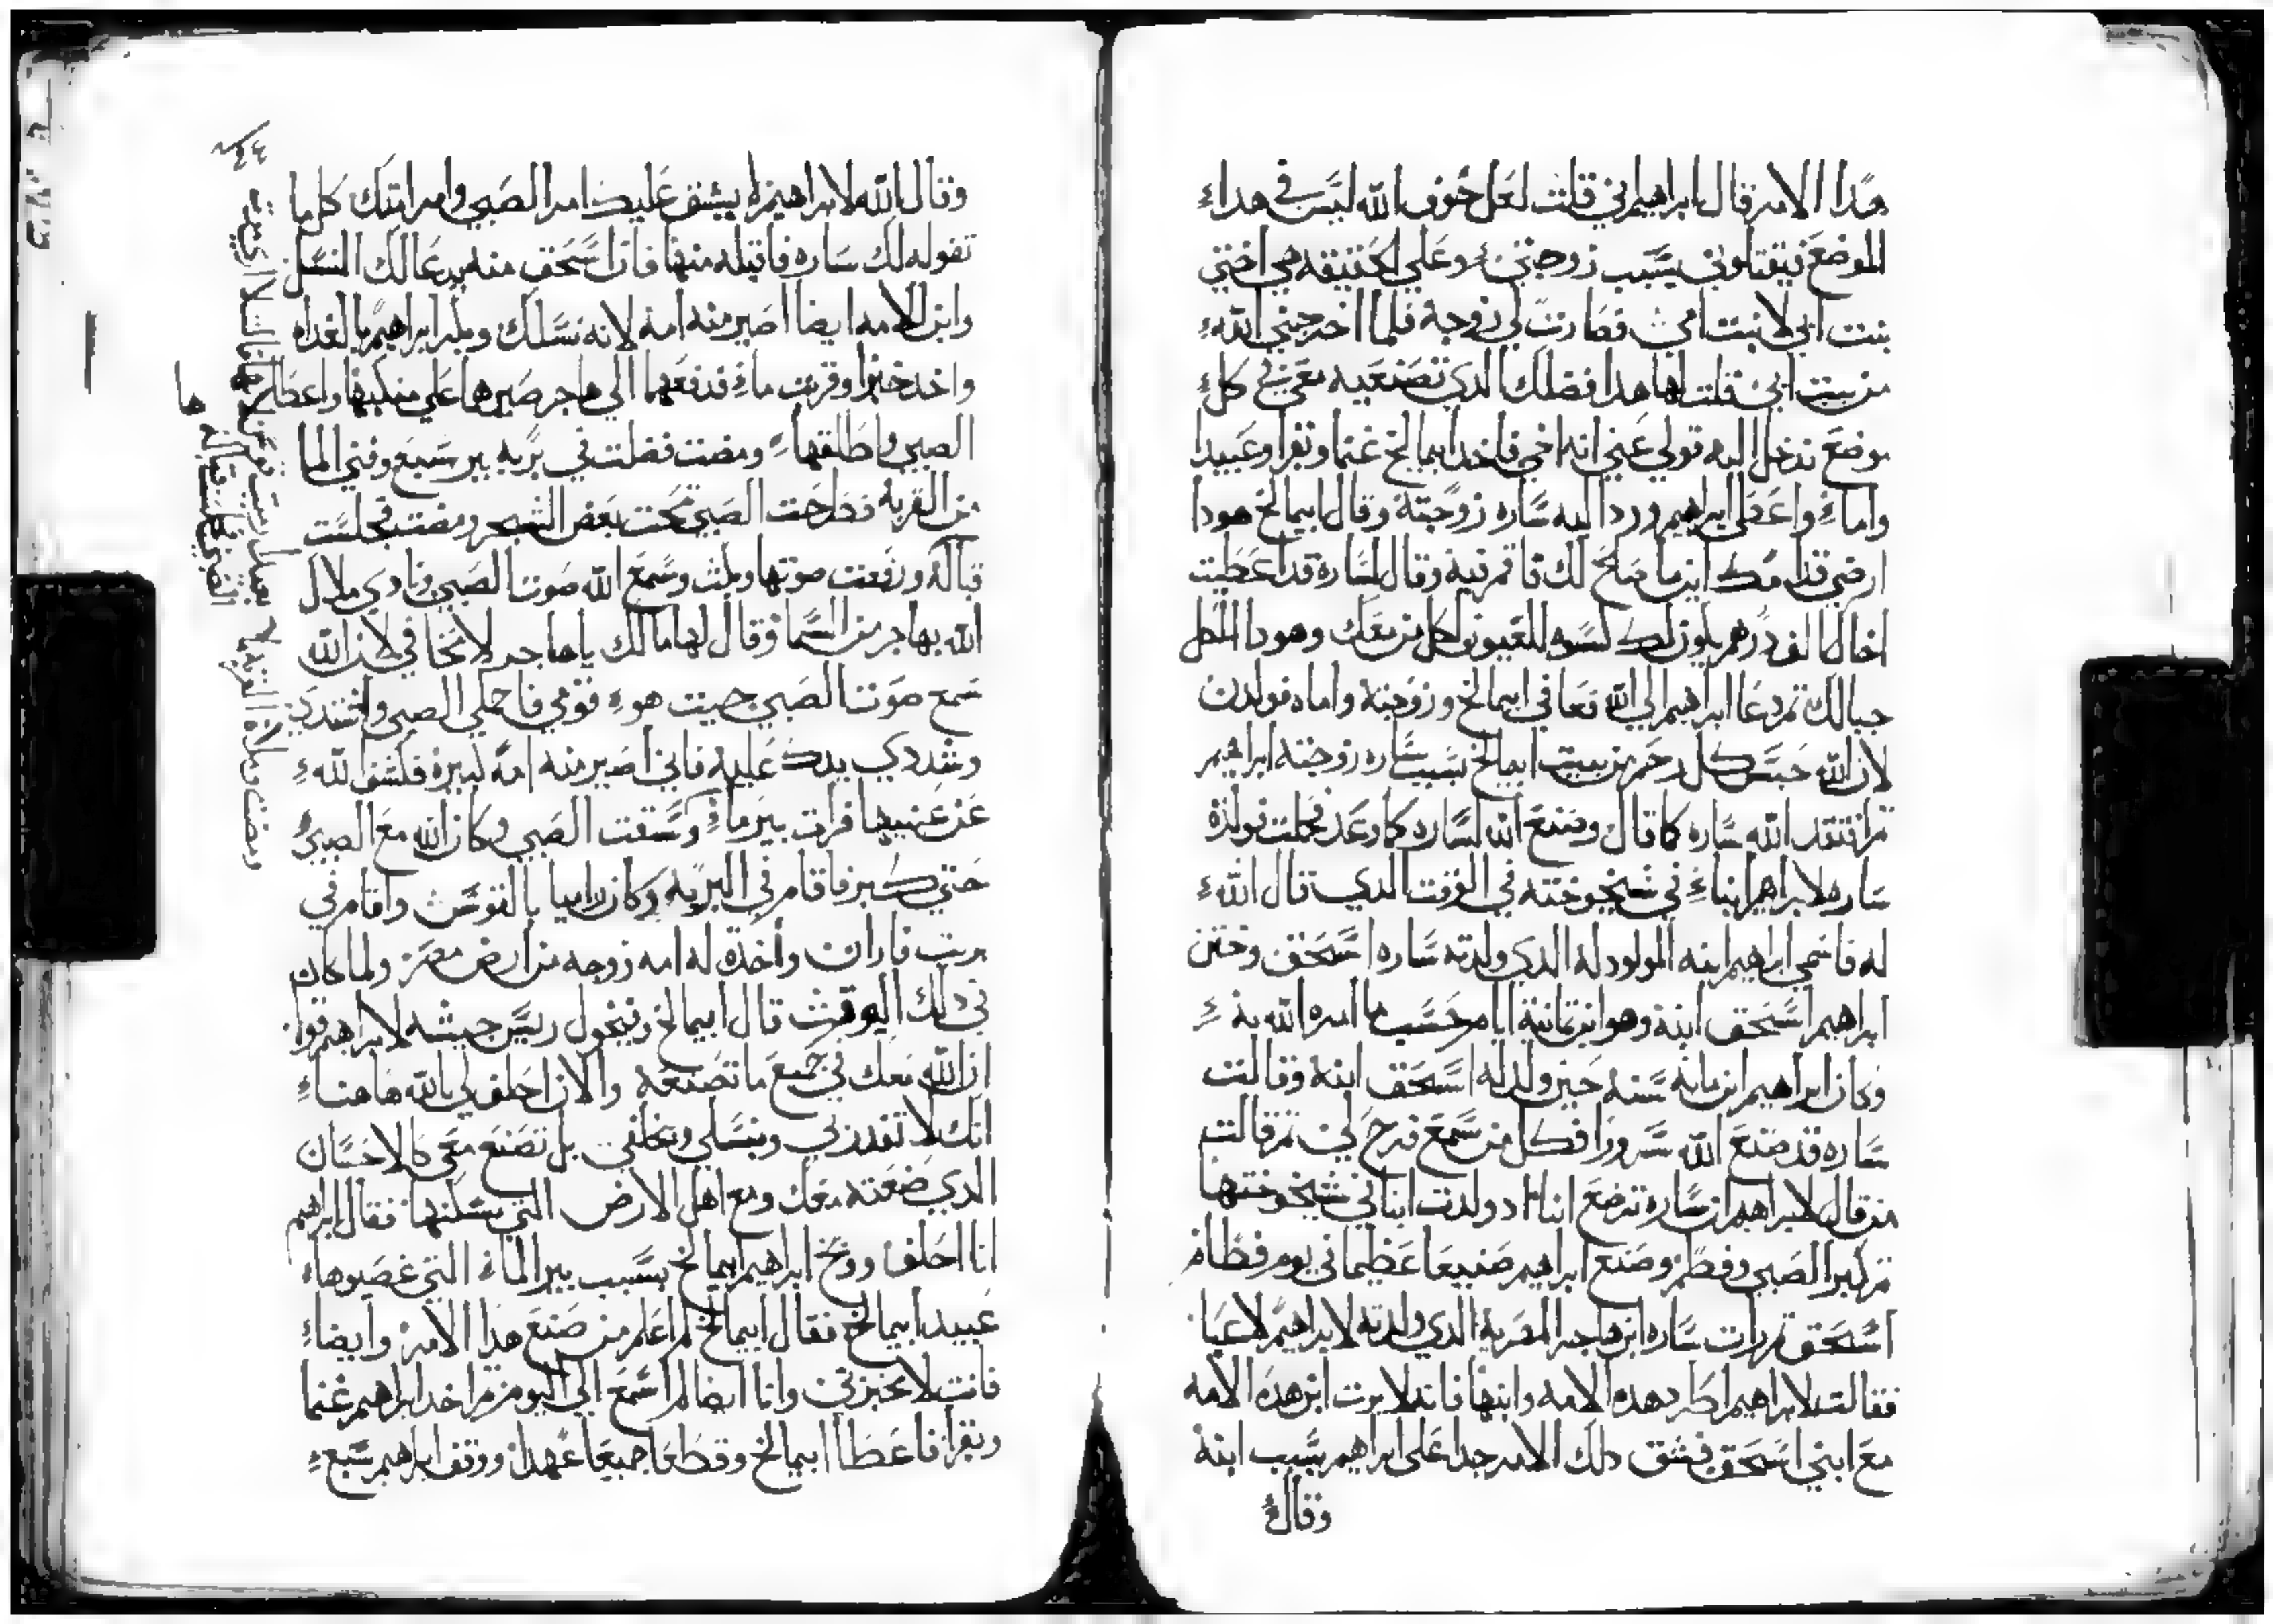 هدا الامر قال ابراهيم اني قلت لعل خوف الله ليس في هدا
الموضع فيقتلوني بسبب زوجتي وعلي الحقيقه هي اختي
بنت ابي لا بنت امي فصارت لي زوجة فلما اخرجني الله
من بيت ابي قلت لها هدا فضلك الدي تصنعيه معي في كل
موضع ندخل اليه قولي عني انه اخي فاخد ابيمالخ غنما وبقرا وعبيدا
واماء واعطي ابراهيم ورد اليه ساره زوجته وقال ابيمالخ هودا
ارضي قدامك اينما صلح لك فاقم فيه وقال لساره قد اعطيت
اخاك الف درهم يكون لك كسوه للعيون ولكل من معك وهودا الكل
حيالك تم دعا ابراهيم الي الله فعافي ابيمالخ وزوجته واماه فولدن
لان الله حبس كل رحم من بيت ابيمالخ بسبب ساره زوجته ابراهيم
تم افتقد الله ساره كما قال وصنع الله لساره كما وعد فحملت فولدة
ساره لابراهيم ابناء في شيخوخته في الوقت الدي قال الله
له فاسمي ابراهيم ابنه المولود له الدي ولدته ساره اسحق وختن
ابراهيم اسحق ابنة وهو ابن تمانية ايام حسب ما امره الله به
وكان ابراهيم ابن مايه سنه حين ولد له اسحق ابنه وقالت
ساره قد صنع الله سرورا فكل من سمع فرح لي تم قالت
من قال لابراهيم ان ساره ترضع ابنا اد ولدت ابنا في شيخوختها
تم كبر الصبي وفطم وصنع ابراهيم صنيعا عظيما في يوم فطام
اسحق تم رات ساره ابن هاجر المصرية الدي ولدته لابراهيم لاعبا
فقالت لابراهيم اطرد هده الامه وابنها فانه لا يرث ابن هده الامه
مع ابني اسحق فشق دلك الامر جدا علي ابراهيم بسبب ابنة
وقال
وقال الله لابراهيم لا يشق عليك امر الصبي وامر امتك كل ما
تقوله لك ساره فاقبله منها فان اسحق منه يدعا لك النسل
وابن الامه ايضا اصير منه امه لانه نسلك وبكر ابراهيم بالغداه
واخد خبزا وقربت ماء فدفعهما الي هاجر صيرها علي منكبها واعطاها
الصبي واطلقها ومضت فضلت في بريه بير سبع وفني الما
من القربه فطرحت الصبي تحت بعض الشجر ومضت فجلست
قبالة ورفعت صوتها وبكت وسمع الله صوت الصبي ونادي ملاك
الله بهاجر من السما وقال لها ما لك ياهاجر لا تخافي لان الله
سمع صوت الصبي حيت هو قومي فاحملي الصبي واشتددي
وشددي يدك عليه فاني اصير منه امة كبيرة فكشف الله
عن عنيها فرات بير ماء وسقت الصبي وكان الله مع الصبي
حتي كبر فاقام في البريه وكان راميا بالقوس واقام في
بريت فاران واخدة له امه زوجه من ارض مصر ولما كان
في دلك الوقت قال ابيمالخ وفيخول رييس جيشه لابراهيم
ان الله معك في جميع ما تصنعه والان احلف لي بالله هاهنا
انك لا تغدر بي وبنسلي بل تصنع معي كالاحسان
الدي صنعته معك ومع اهل الارض التي سكنتها فقال ابراهيم
انا احلف ووبخ ابراهيم ابيمالخ بسبب بير الماء التي غصبوها
عبيد ابيمالخ فقال ابيمالخ لم اعلم من صنع هدا الامر وايضاء
فانت لا تخبرني وانا ايضا لم اسمع الي اليوم تم اخد ابراهيم غنما
وبقرا فاعطا ابيمالخ وقطعا جميعا عهدا ووقف ابراهيم سبع